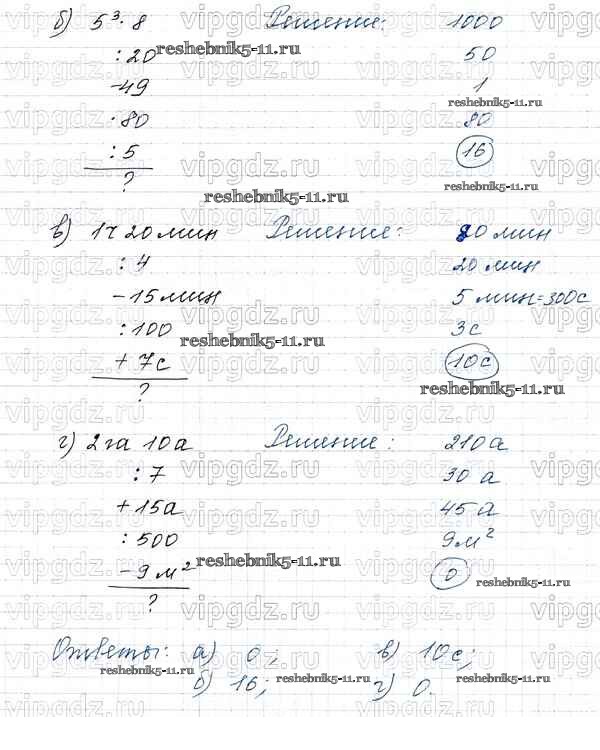 б) 5³·8 Решение: 1000
:20 50
-49 1
·80 80
:5 16
?
в) 1ч 20мин Решение: 80 мин
:4 20 мин
-15мин 5 мин=300с
:100 3с
+7с 10с
?
г) 2га 10а Решение: 210а
:7 30 а
+15а 45 а
:500 9м²
-9м² 0
?
Ответы: а) 0; в) 10с;
б) 16; г) 0.
vipgdz.ru
reshebnik5-11.ru